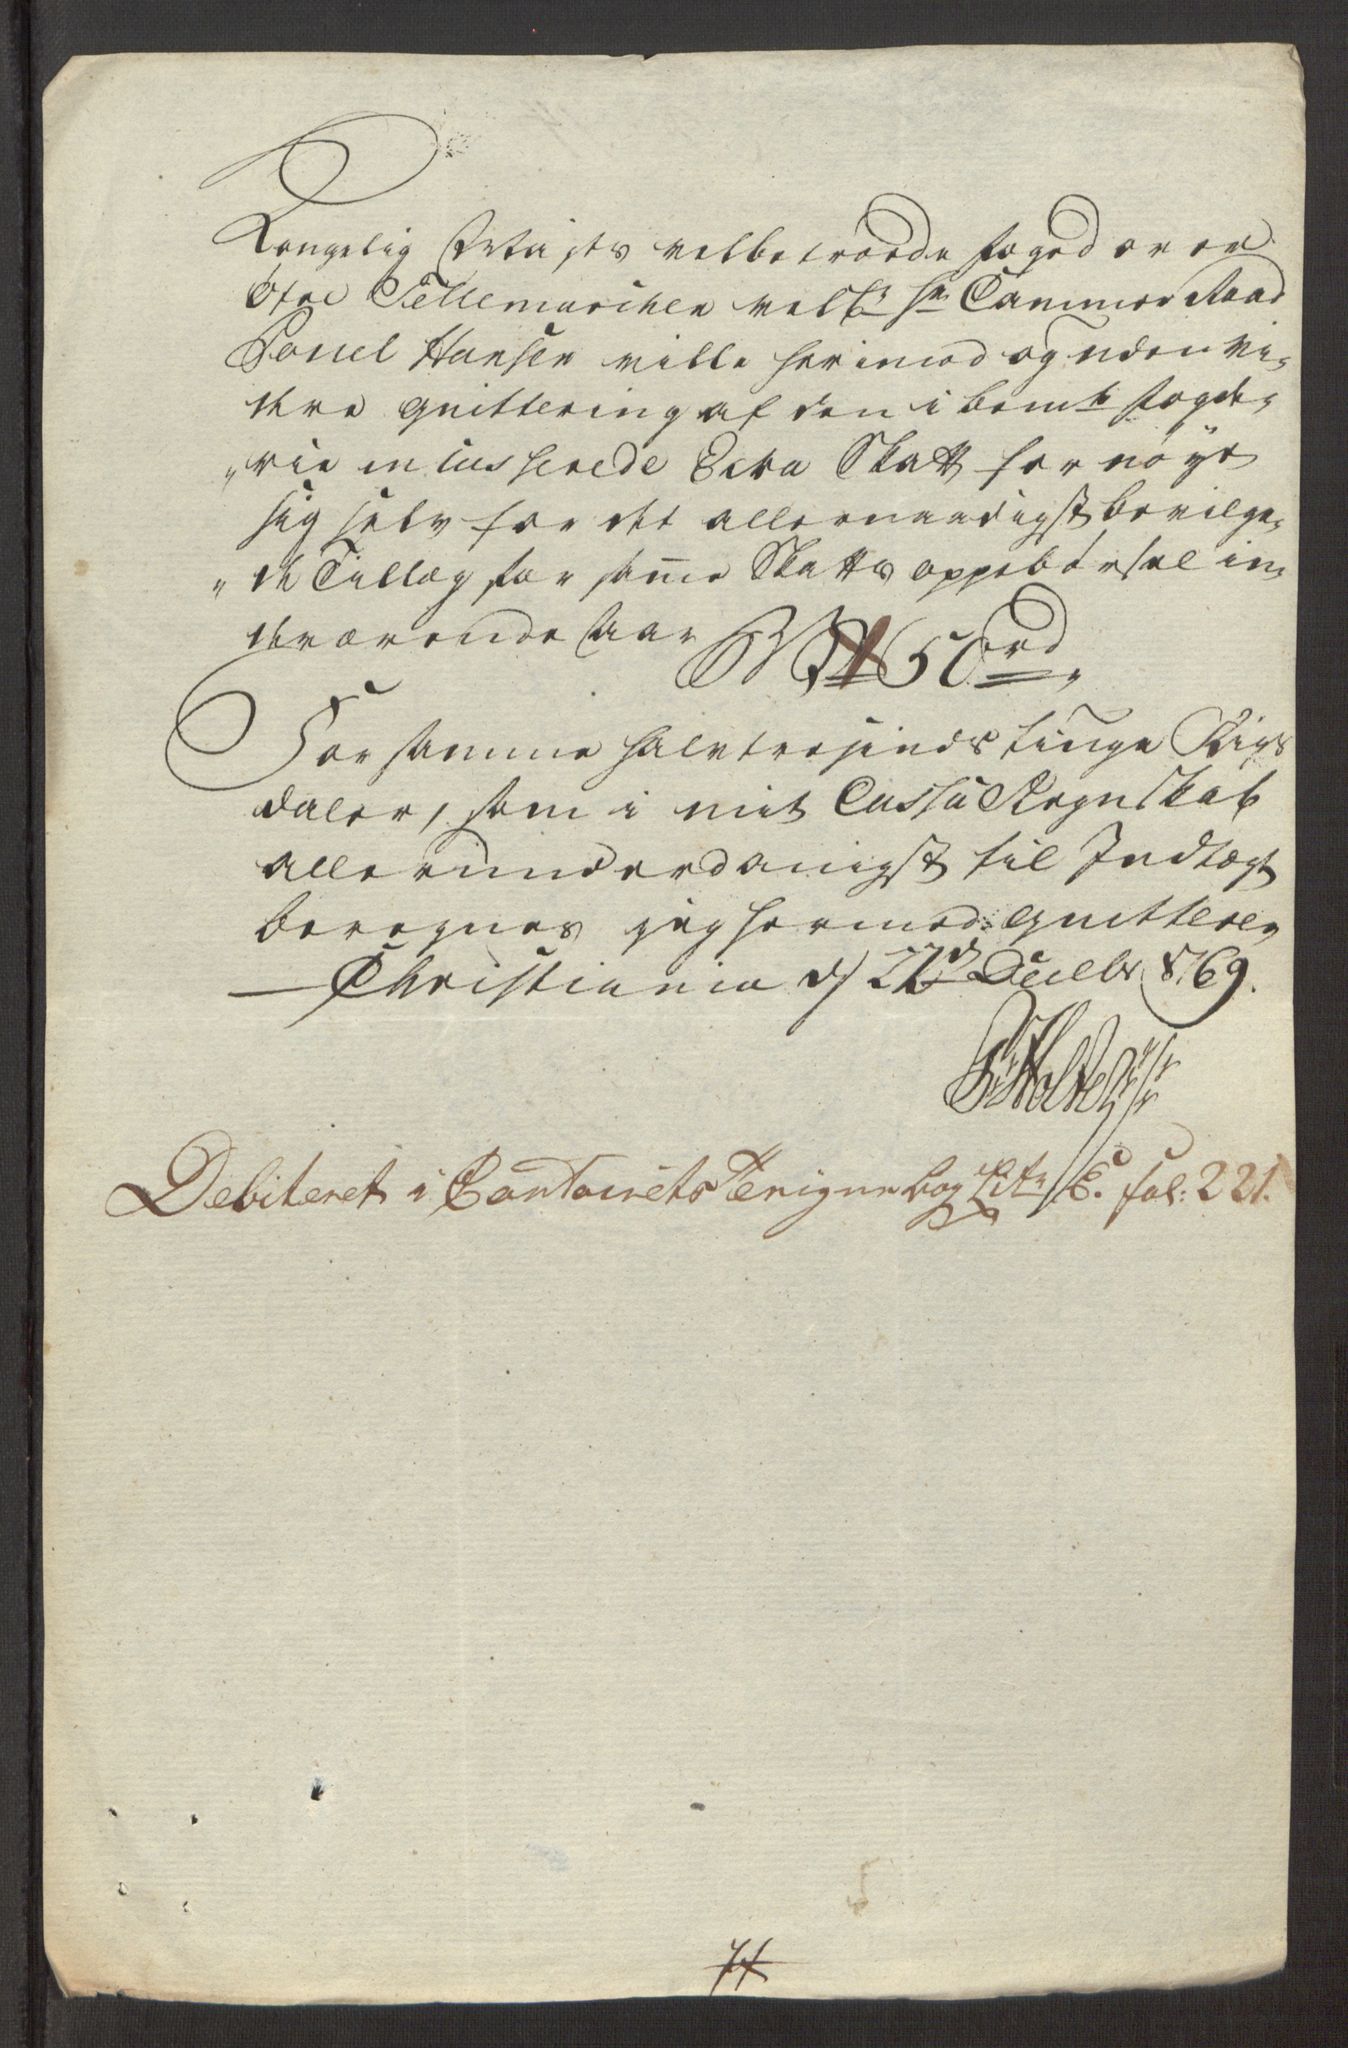 Kongelig Mayts velbetroede foged over
Øfre Tellemarchen velb: hr Cammer Raad
Povel Hansen ville herimod og uden vi„
dere quittering af den i bemte fogde„
„rie incasserede Extra Skatt fornøye
sig selv for det allernaadigst bevilge„
„de Tillæg for samme Skatts oppebørsel in„
deværende Aar 50 rd
For samme halvtresindstiuge Rigs
daler, som i mit Cassa Regnskab
allerunderdanigst til Indtægt
beregnes jeg hermed quitterer
Christiania d 22d Decembr 1769.
Holte
Debiteret i Contoirets Designe bog Litr E. fol: 221.
71